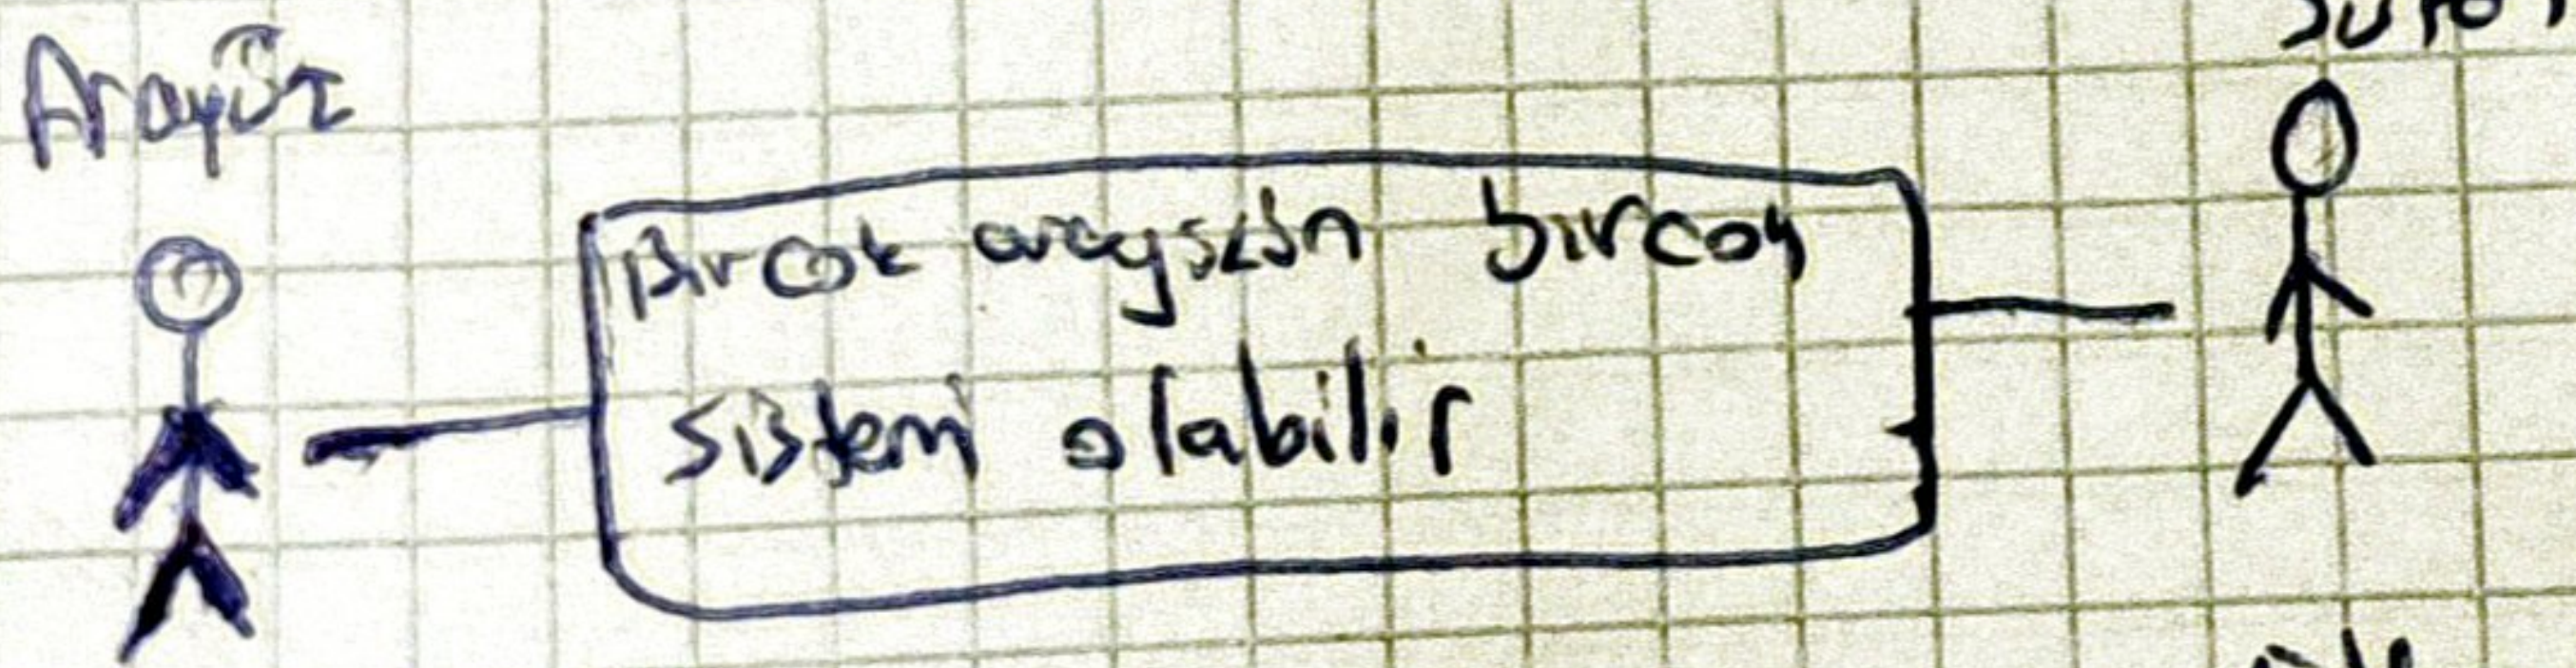 Arayüz
Birçok arayüzün birçoy
sistemi olabilir